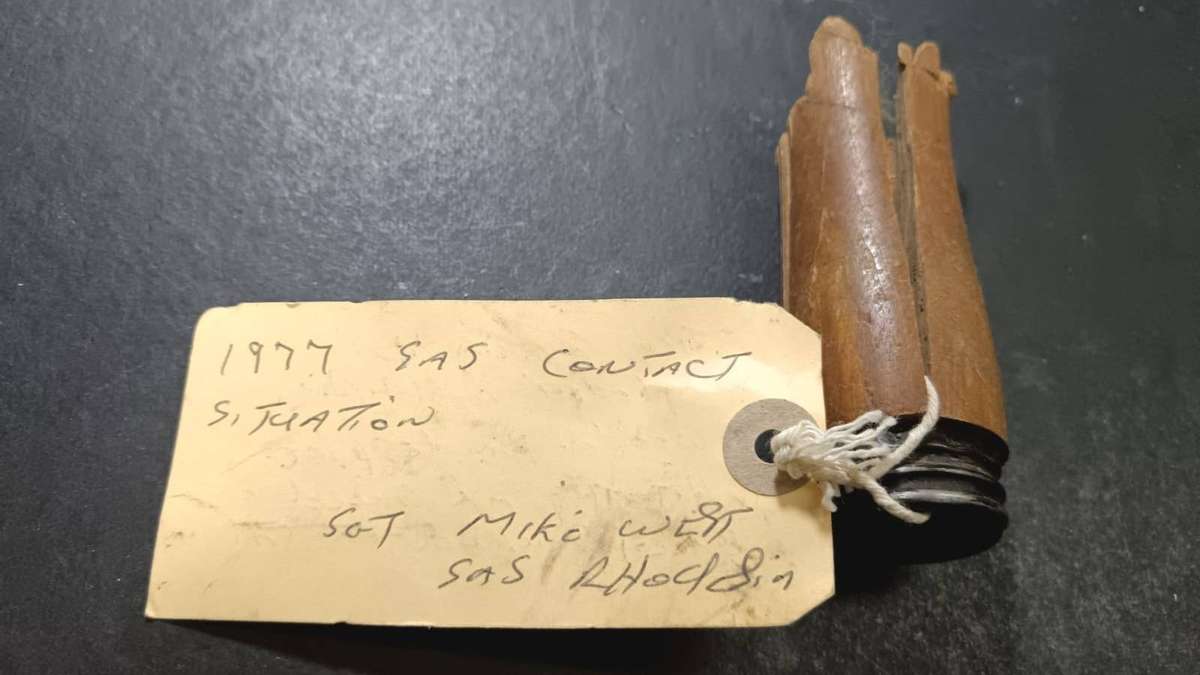 1977 SAS CONTACT
SITUATION
SGT MIKE WEST
SAS RHODESIA